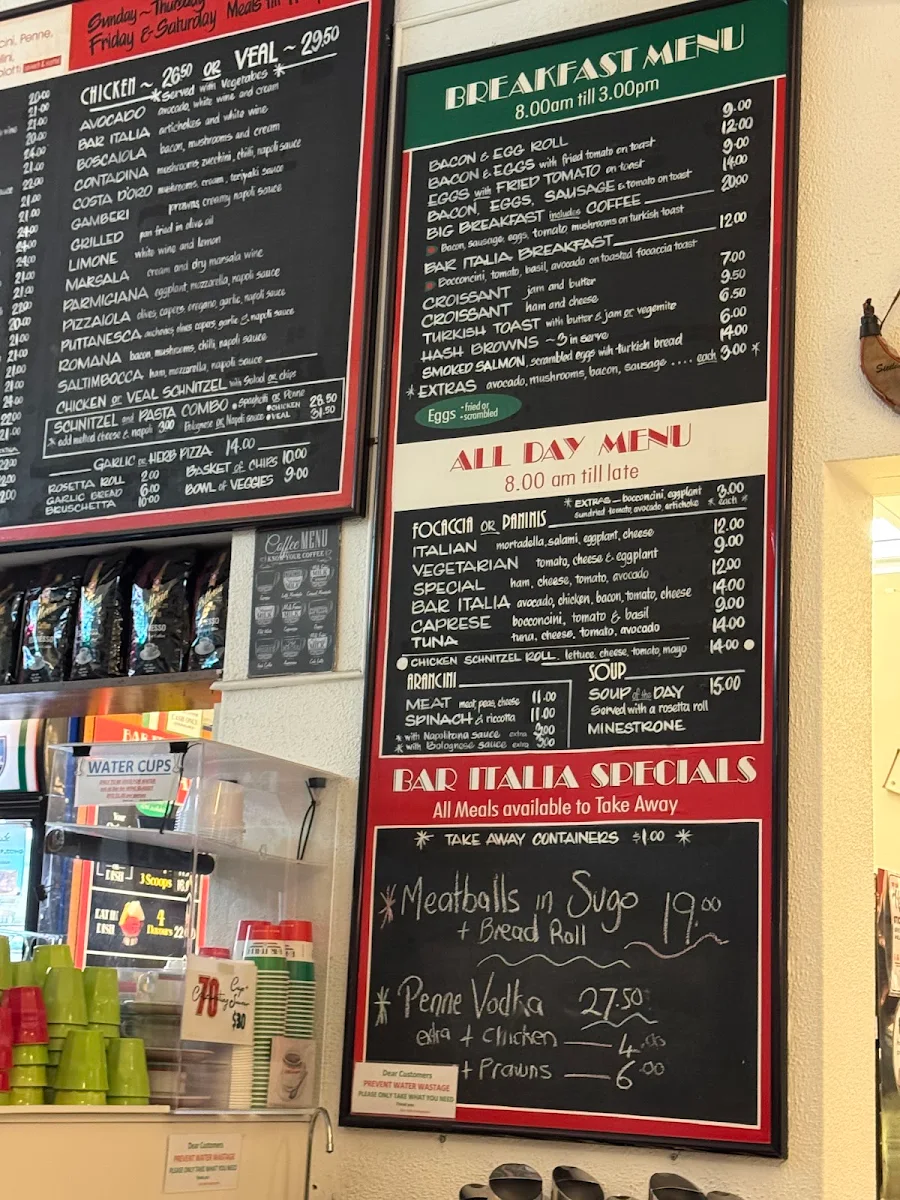 Sunday ~ Thursday
Friday & Saturday Meals till
cini, Penne,
CHICKEN ~ 26.50 OR VEAL ~ 29.50
*Served with Vegetables*
AVOCADO avocado, white wine and cream
BAR ITALIA artichokes and white wine
BOSCAIOLA bacon, mushrooms and cream
CONTADINA mushrooms zucchini, chilli, napoli sauce
COSTA D'ORO mushrooms, cream, teriyaki sauce
GAMBERI prawns, creamy napoli sauce
GRILLED pan fried in olive oil
LIMONE white wine and lemon
MARSALA cream and dry marsala wine
PARMIGIANA eggplant, mozzarella, napoli sauce
PIZZAIOLA olives, capers, oregano, garlic, napoli sauce
PUTTANESCA anchovies, olives, capers, garlic & napoli sauce
ROMANA bacon, mushrooms, chilli, napoli sauce
SALTIMBOCCA ham, mozzarella, napoli sauce
CHICKEN or VEAL SCHNITZEL with Salad or chips
SCHNITZEL and PASTA COMBO • Spaghetti or Penne
Bolognese or Napoli sauce • CHICKEN 28.50
* add melted cheese & napoli 3.00 • VEAL 31.50
GARLIC or HERB PIZZA 14.00
ROSETTA ROLL 2.00 BASKET of CHIPS 10.00
GARLIC BREAD 6.00 BOWL of VEGGIES 9.00
BRUSCHETTA 10.00
BREAKFAST MENU
8.00am till 3.00pm
BACON & EGG ROLL 9.00
BACON & EGGS with fried tomato on toast 12.00
EGGS with FRIED TOMATO on toast 9.00
BACON, EGGS, SAUSAGE & tomato on toast 14.00
BIG BREAKFAST includes COFFEE 20.00
Bacon, sausage, eggs, tomato, mushrooms on turkish toast
BAR ITALIA BREAKFAST 12.00
Bocconcini, tomato, basil, avocado on toasted focaccia toast
CROISSANT jam and butter 7.00
CROISSANT ham and cheese 9.50
TURKISH TOAST with butter & jam or vegemite 6.50
HASH BROWNS ~ 3 in serve 6.00
SMOKED SALMON, scrambled eggs with turkish bread 14.00
* EXTRAS avocado, mushrooms, bacon, sausage .... each 3.00 *
Eggs - fried or scrambled
ALL DAY MENU
8.00 am till late
FOCACCIA OR PANINIS * EXTRAS - bocconcini, eggplant 3.00
sundried tomato, avocado, artichoke * each *
ITALIAN mortadella, salami, eggplant, cheese 12.00
VEGETARIAN tomato, cheese & eggplant 9.00
SPECIAL ham, cheese, tomato, avocado 12.00
BAR ITALIA avocado, chicken, bacon, tomato, cheese 14.00
CAPRESE bocconcini, tomato & basil 9.00
TUNA tuna, cheese, tomato, avocado 14.00
CHICKEN SCHNITZEL ROLL, lettuce, cheese, tomato, mayo 14.00
ARANCINI
MEAT meat, peas, cheese 11.00
SPINACH & ricotta 11.00
* with Napolitana sauce extra
* with Bolognese sauce extra
SOUP
SOUP of the DAY 15.00
Served with a rosetta roll
MINESTRONE
BAR ITALIA SPECIALS
All Meals available to Take Away
* TAKE AWAY CONTAINERS $1.00 *
* Meatballs in Sugo 19.00
+ Bread Roll
* Penne Vodka 27.50
extra + Chicken — 4.00
+ Prawns — 6.00
Dear Customers
PREVENT WATER WASTAGE
PLEASE ONLY TAKE WHAT YOU NEED
Coffee MENU
KNOW YOUR COFFEE
WATER CUPS
3 Scoops
EAT IN
DISH
4
Flavours 22
70
$30
Dear Customers
PREVENT WATER WASTAGE
PLEASE ONLY TAKE WHAT YOU NEED